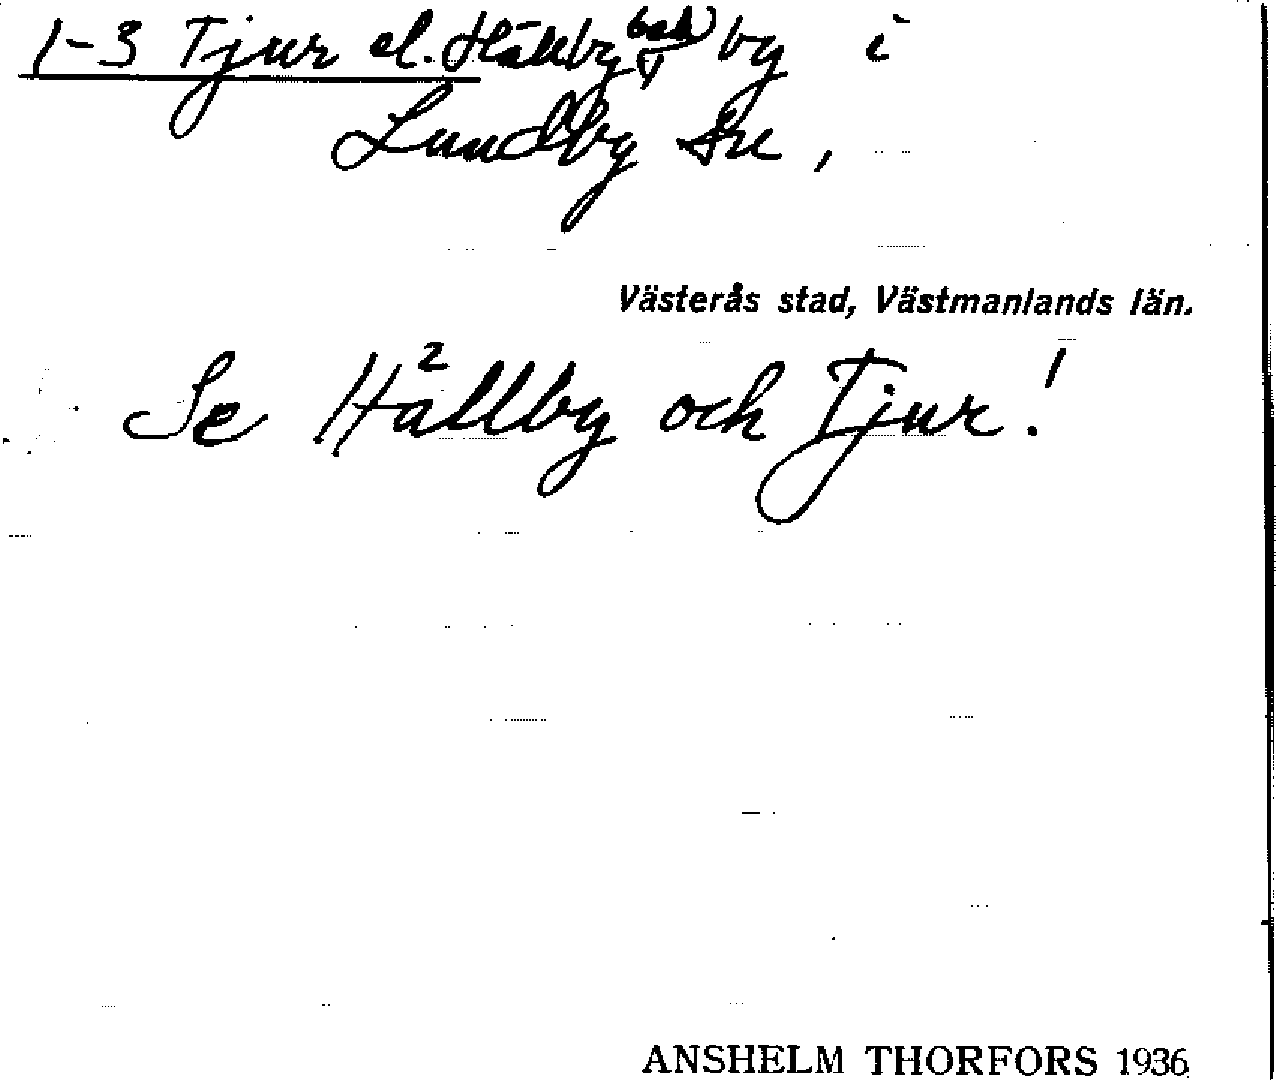 1-3 Tjur el. Hällby by i
Lundby sn,
Västerås stad, Västmanlands län.
Se Hällby 2 och Tjur 1.
ANSHELM THORFORS 1936